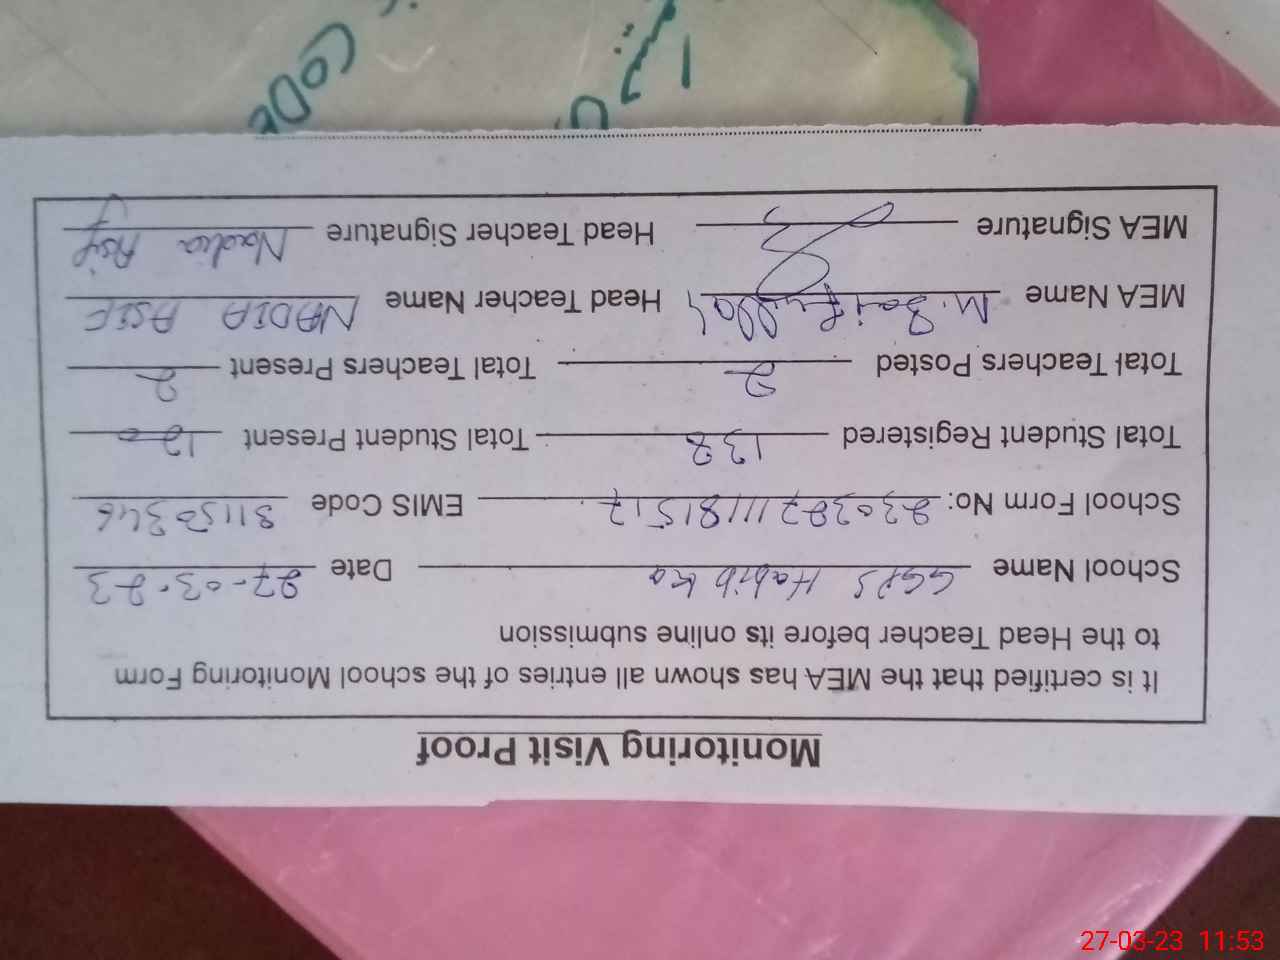 Monitoring Visit Proof
It is certified that the MEA has shown all entries of the school Monitoring Form
to the Head Teacher before its online submission
School Name GGPS Habib ka Date 27-03-23
School Form No: EMIS Code 31150346
Total Student Registered 138 Total Student Present 120
Total Teachers Posted 2 Total Teachers Present 2
MEA Name M. Saifullah Head Teacher Name NADIA ASIF
MEA Signature Head Teacher Signature Nadia Asif
CODE
27-03-23 11:53